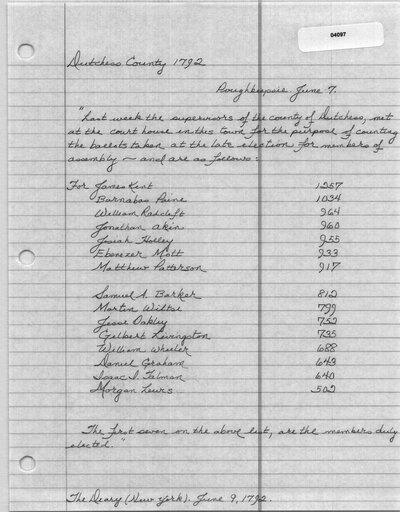 04097
Dutchess County 1792
Poughkeepsie June 7.
"Last week the supervisors of the county of Dutchess, met
at the court house in this town for the purpose of counting
the ballots taken at the late election for members of
assembly — and are as follows:
For James Kent 1257
Barnabas Paine 1034
William Radclift 964
Jonathan Akin 960
Josiah Holley 955
Ebenezer Mott 933
Matthew Patterson 917
Samuel A. Barker 812
Martin Wiltse 799
Jesse Oakley 752
Gilbert Livingston 735
William Wheeler 688
Daniel Graham 643
Isaac I. Talman 640
Morgan Lewis 502
The first seven on the above list, are the members duly
elected."
The Diary (New York). June 9, 1792.